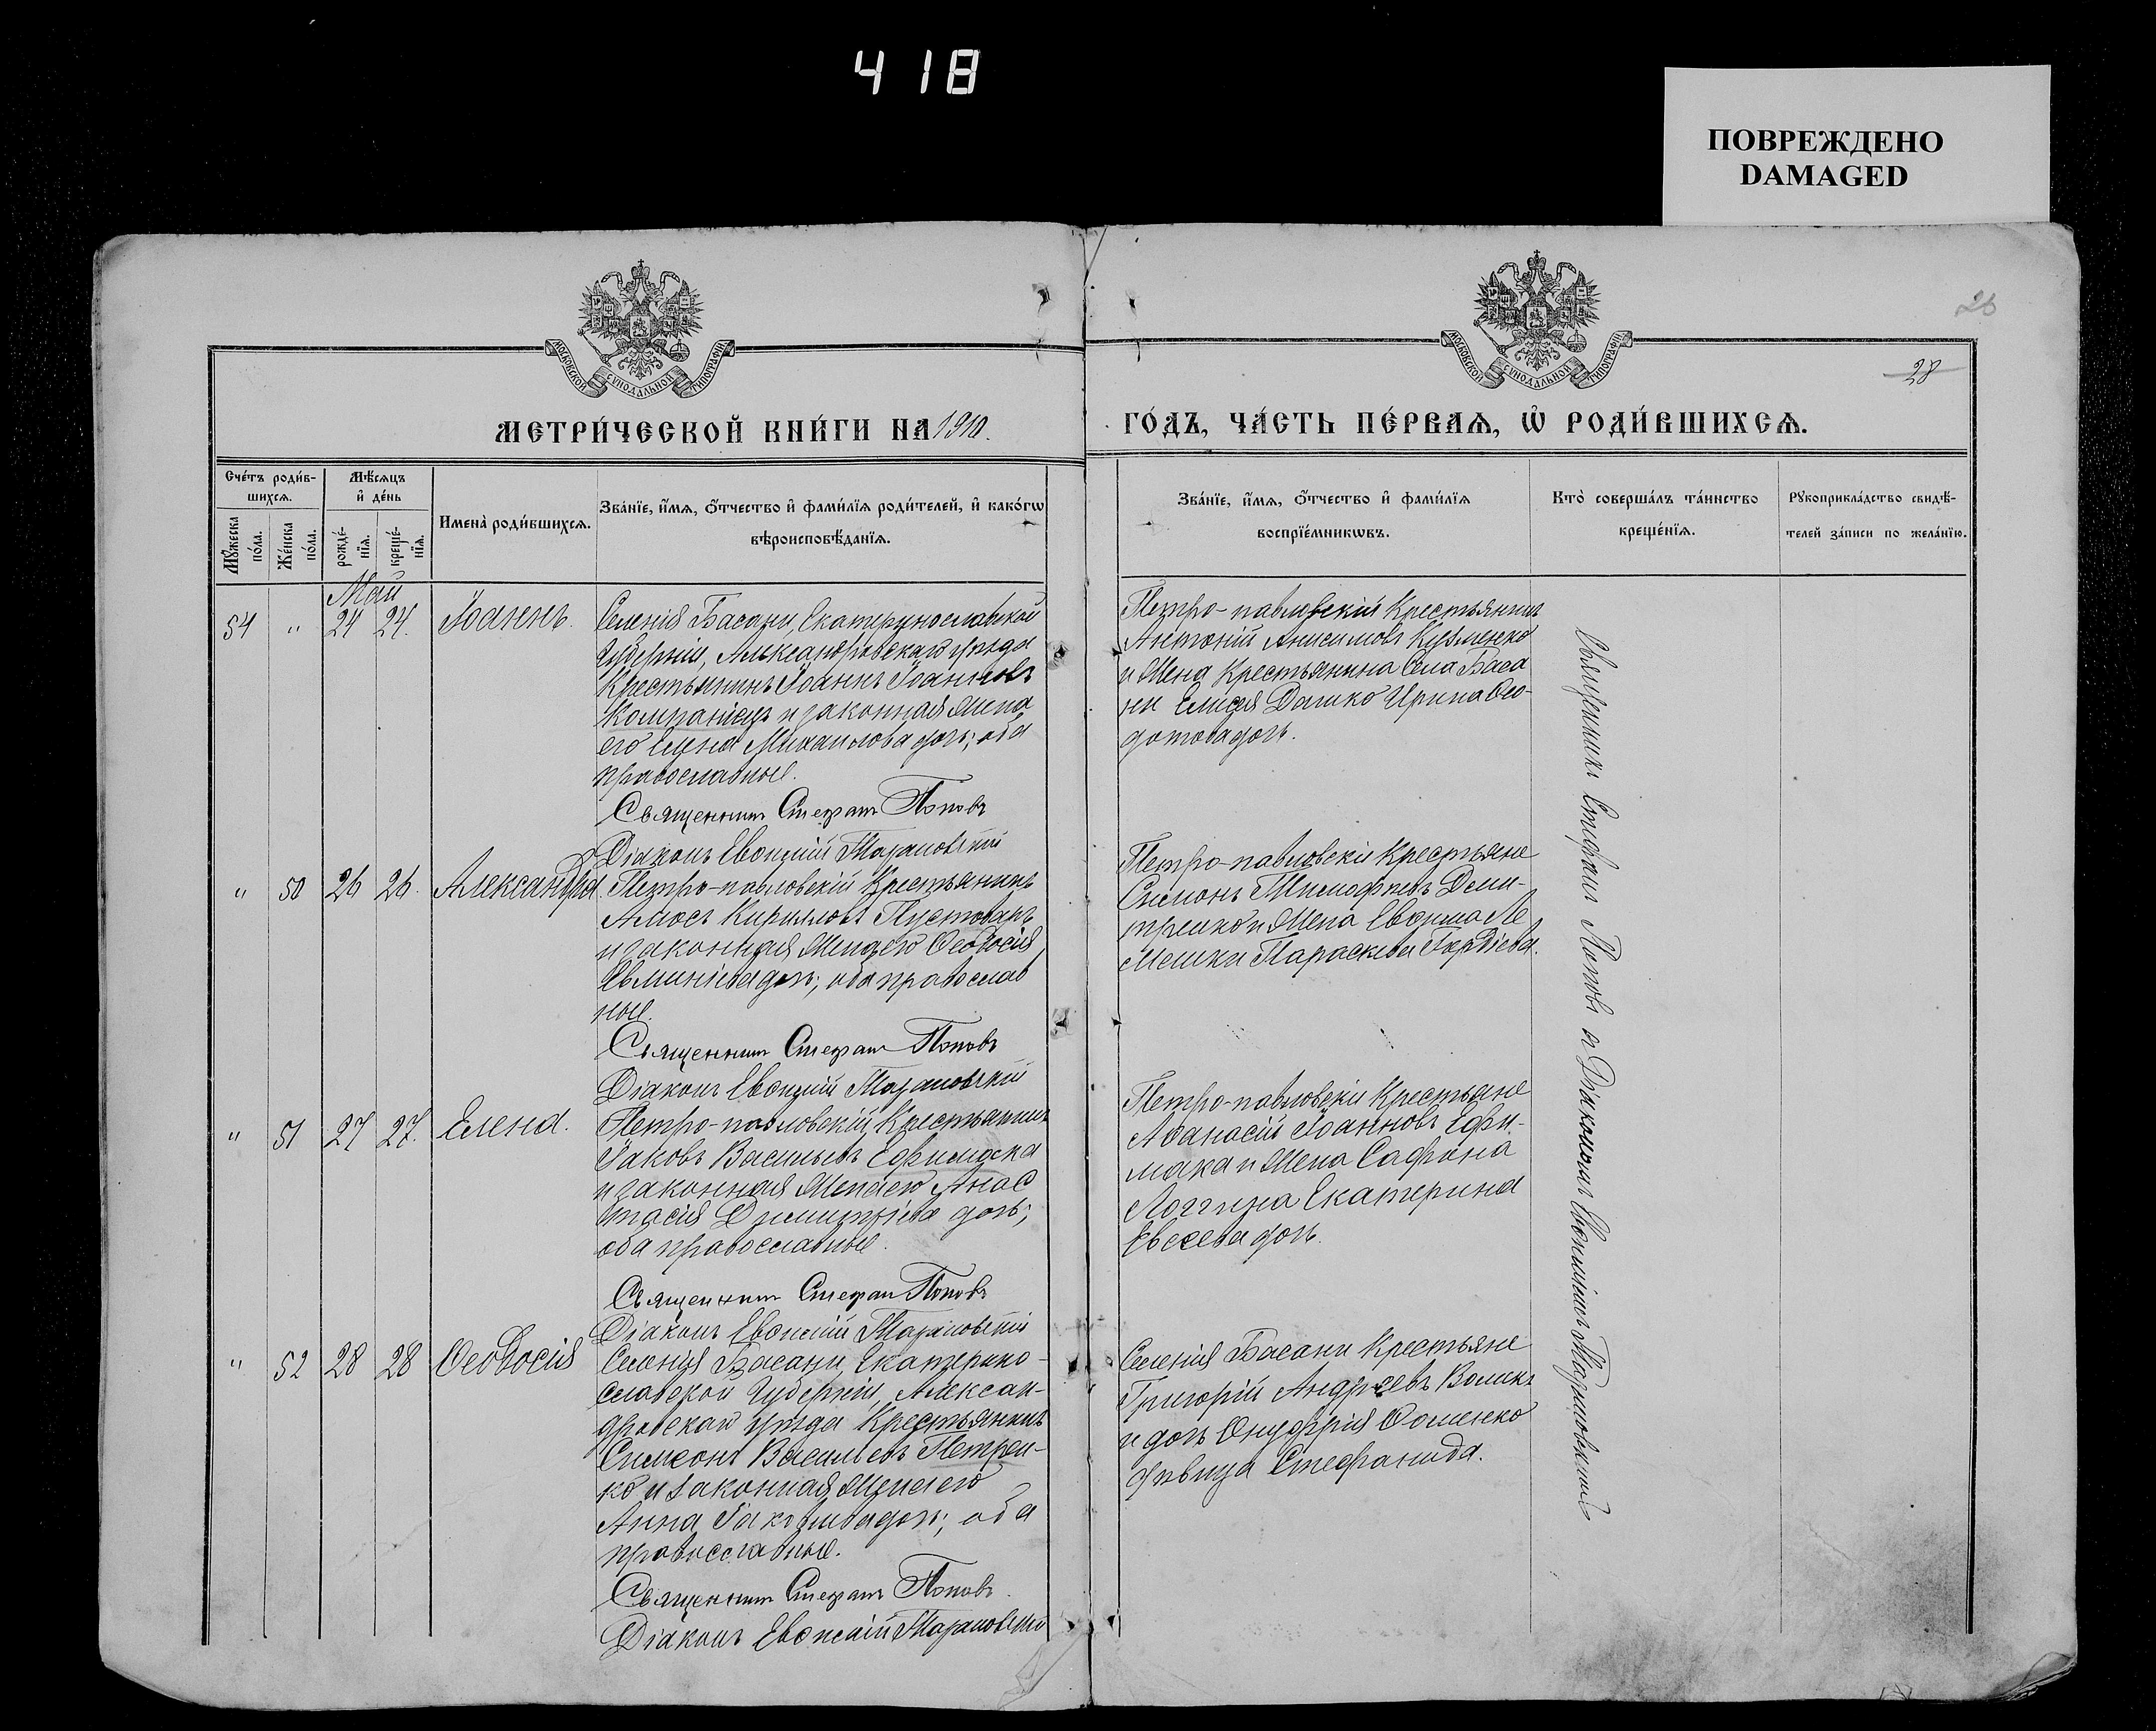 418
ПОВРЕЖДЕНО
DAMAGED
26
28
МОСКОВСКОЙ СѴНОДАЛЬНОЙ ТИПОГРАФІИ
МОСКОВСКОЙ СѴНОДАЛЬНОЙ ТИПОГРАФІИ
МЕТРИ́ЧЕСКОЙ КНИ́ГИ НА 1910.
ГО́ДЪ, ЧА́СТЬ ПЕ́РВАѦ, Ѡ҆ РОДИ́ВШИХСѦ.
Сче́тъ роди́в-
шихсѧ.
Мꙋ́жеска по́ла.
Же́нска по́ла.
Мѣ́сѧцъ
и҆ де́нь
рожде́-
нїѧ.
креще́-
нїѧ.
Имена̀ роди́вшихсѧ.
Зва́нїе, и҆́мѧ, ѻ҆́тчество и҆ фами́лїѧ роди́телей, и҆ како́гѡ
вѣроисповѣ́данїѧ.
Зва́нїе, и҆́мѧ, ѻ҆́тчество и҆ фами́лїѧ
воспрїе́мникѡвъ.
Кто̀ соверша́лъ та́инство
креще́нїѧ.
Рꙋкоприкла́дство свидѣ́-
телей за́писи по жела́нїю.
Май
54 " 24 24. Іоаннъ.
Селенія Басани, Екатеринославской
Губерніи, Александровскаго уѣзда
Крестьянинъ Іоаннъ Іоанновъ
Компаніецъ и законная жена
его Михаилова дочь; оба
православные.
Священникъ Стефанъ Поповъ
Діаконъ Евѳимій Тарановскій
Петро-павловскій Крестьянинъ
Антоній Анисимовъ Кузменко
и жена Крестьянина Села Баса
ни Елисея Дашко Ирина Ѳео-
дотова дочь.
" 50 26 26. Александра.
Петро-павловскій Крестьянинъ
Амосъ Кирилловъ Пустоваръ
и законная жена его Ѳеодосія
дочь; оба православ
ные.
Священникъ Стефанъ Поповъ
Діаконъ Евѳимій Тарановскій
Петро-павловскіе Крестьяне
Симонъ Тимофеевъ Дми-
тренко и жена Евѳима Ле
мешки Параскева Гордіева.
" 51 27 27. Елена.
Петро-павловскій Крестьянинъ
Іаковъ Васильевъ Ефимака
и законная жена его Анас
тасія Димитріева дочь;
оба православные.
Священникъ Стефанъ Поповъ
Діаконъ Евѳимій Тарановскій
Петро-павловскіе Крестьяне
Аѳанасій Іоанновъ Ефи-
мака и жена Сафона
Логгина Екатерина
Евсеева дочь.
" 52 28 28 Ѳеодосія
Селенія Басани, Екатерино-
славской Губерніи, Алексан-
дровскаго уѣзда Крестьянинъ
Симеонъ Васильевъ Петрен-
ко и законная жена его
Анна Іаковлева дочь; оба
православные.
Священникъ Стефанъ Поповъ
Діаконъ Евѳимій Тарановскій
Селенія Басани Крестьяне
Григорій Андреевъ Воликъ
и дочь Онуфрія Ѳоменко
дѣвица Стефанида.
Священникъ Стефанъ Поповъ и Діакономъ Евѳиміемъ Тарановскимъ